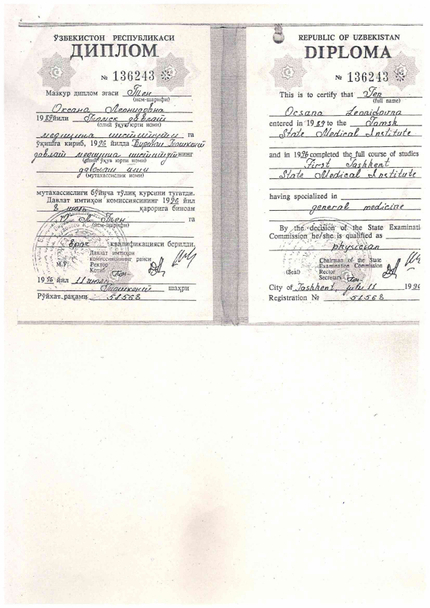 ЎЗБЕКИСТОН РЕСПУБЛИКАСИ
ДИПЛОМ
№ 136243
Мазкур диплом эгаси Тен
(исм-шарифи)
Оксана Леонидовна
1989 йили Томск давлат
(олий ўқув юрти номи)
медицина институти га
ўқишга кириб, 1996 йилда Биринчи Тошкент
давлат медицина институти нинг
(олий ўқув юрти номи)
даволаш иши
(мутахассислик номи)
мутахассислиги бўйича тўлиқ курсини тугатди.
Давлат имтиҳон комиссиясининг 1996 йил
қарорига биноан
О. Л. Тен га
(исм-шарифи)
врач квалификацияси берилди.
Давлат имтиҳон
комиссиясининг раиси
М.Ў. Ректор
Котиб
1996 йил 11
Тошкент шаҳри
Рўйхат. рақами 51568
REPUBLIC OF UZBEKISTAN
DIPLOMA
№ 136243
This is to certify that Ten
(full name)
Ocsana Leonidovna
entered in 1989 to the Tomsk
State Medical Institute
and in 1996 completed the full course of studies
First Tashkent
State Medical Institute
having specialized in
general medicine
By the decision of the State Examinati
Commission he/she is qualified as
physician
Chairman of the State
Examination Commission
(Seal) Rector
Secretary
City of Tashkent, july 11 1996
Registration № 51568